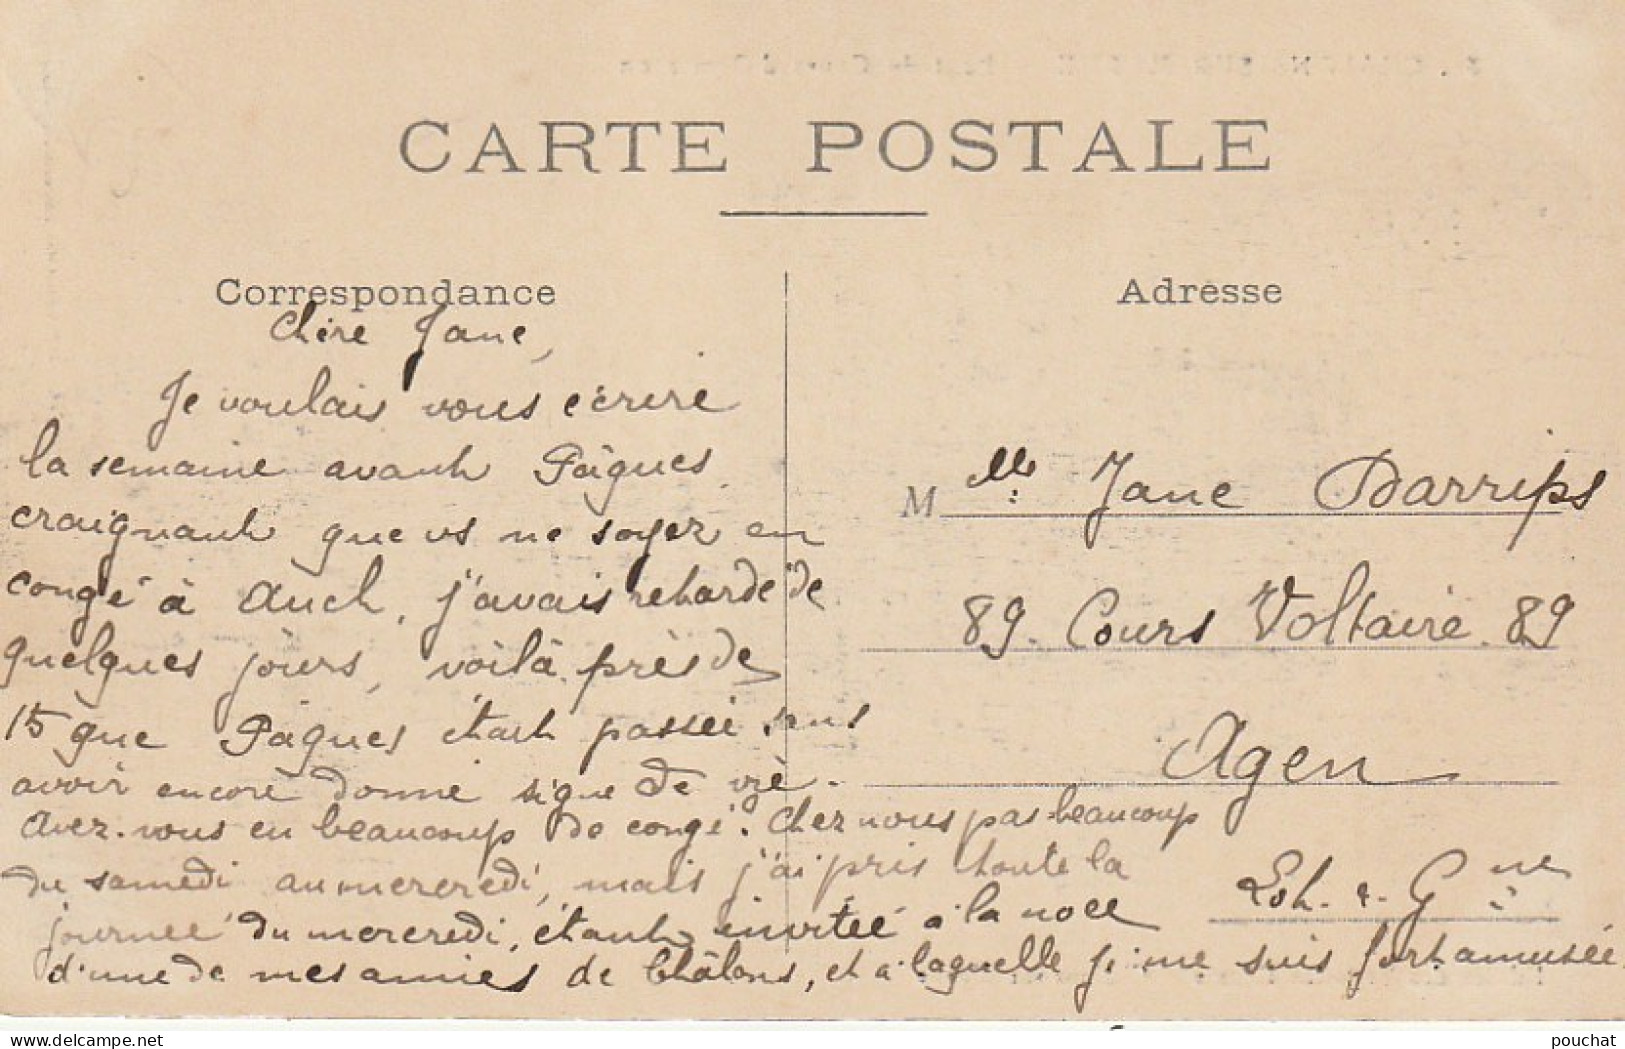 CARTE POSTALE
Correspondance
Chère Jane,
Je voulais vous écrire
la semaine avant Pâques
craignant que vs ne soyez en
congé à Auch, j'avais retardé de
quelques jours, voilà près de
15 que Pâques étant passée sans
avoir encore donné signe de vie.
Avez-vous eu beaucoup de congé. Chez nous pas beaucoup
du samedi au mercredi, mais j'ai pris toute la
journée du mercredi, étant invitée à la noce
d'une de mes amies de Châlons, et à laquelle je me suis fort amusée.
Adresse
Mlle Jane Darrips
89. Cours Voltaire. 89
Agen
Lot. & G ne
pouchat